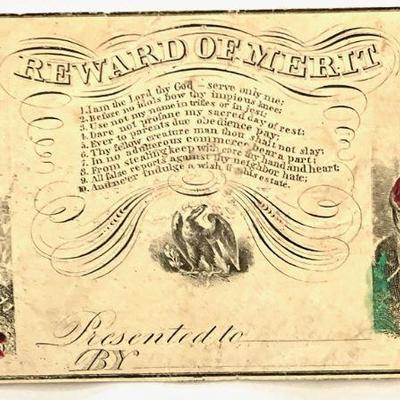 REWARD OF MERIT
1. I am the Lord thy God – serve only me;
2. Before no idols bow thy impious knee;
3. Use not my name in trifles or in jest;
4. Dare not profane my sacred day of rest;
5. Ever to parents due obedience pay;
6. Thy fellow creature man thou shalt not slay;
7. In no adulterous commerce bear a part;
8. From stealing keep with care thy hand and heart;
9. All false reports against thy neighbor hate;
10. And ne'er indulge a wish his estate.
Presented to
BY